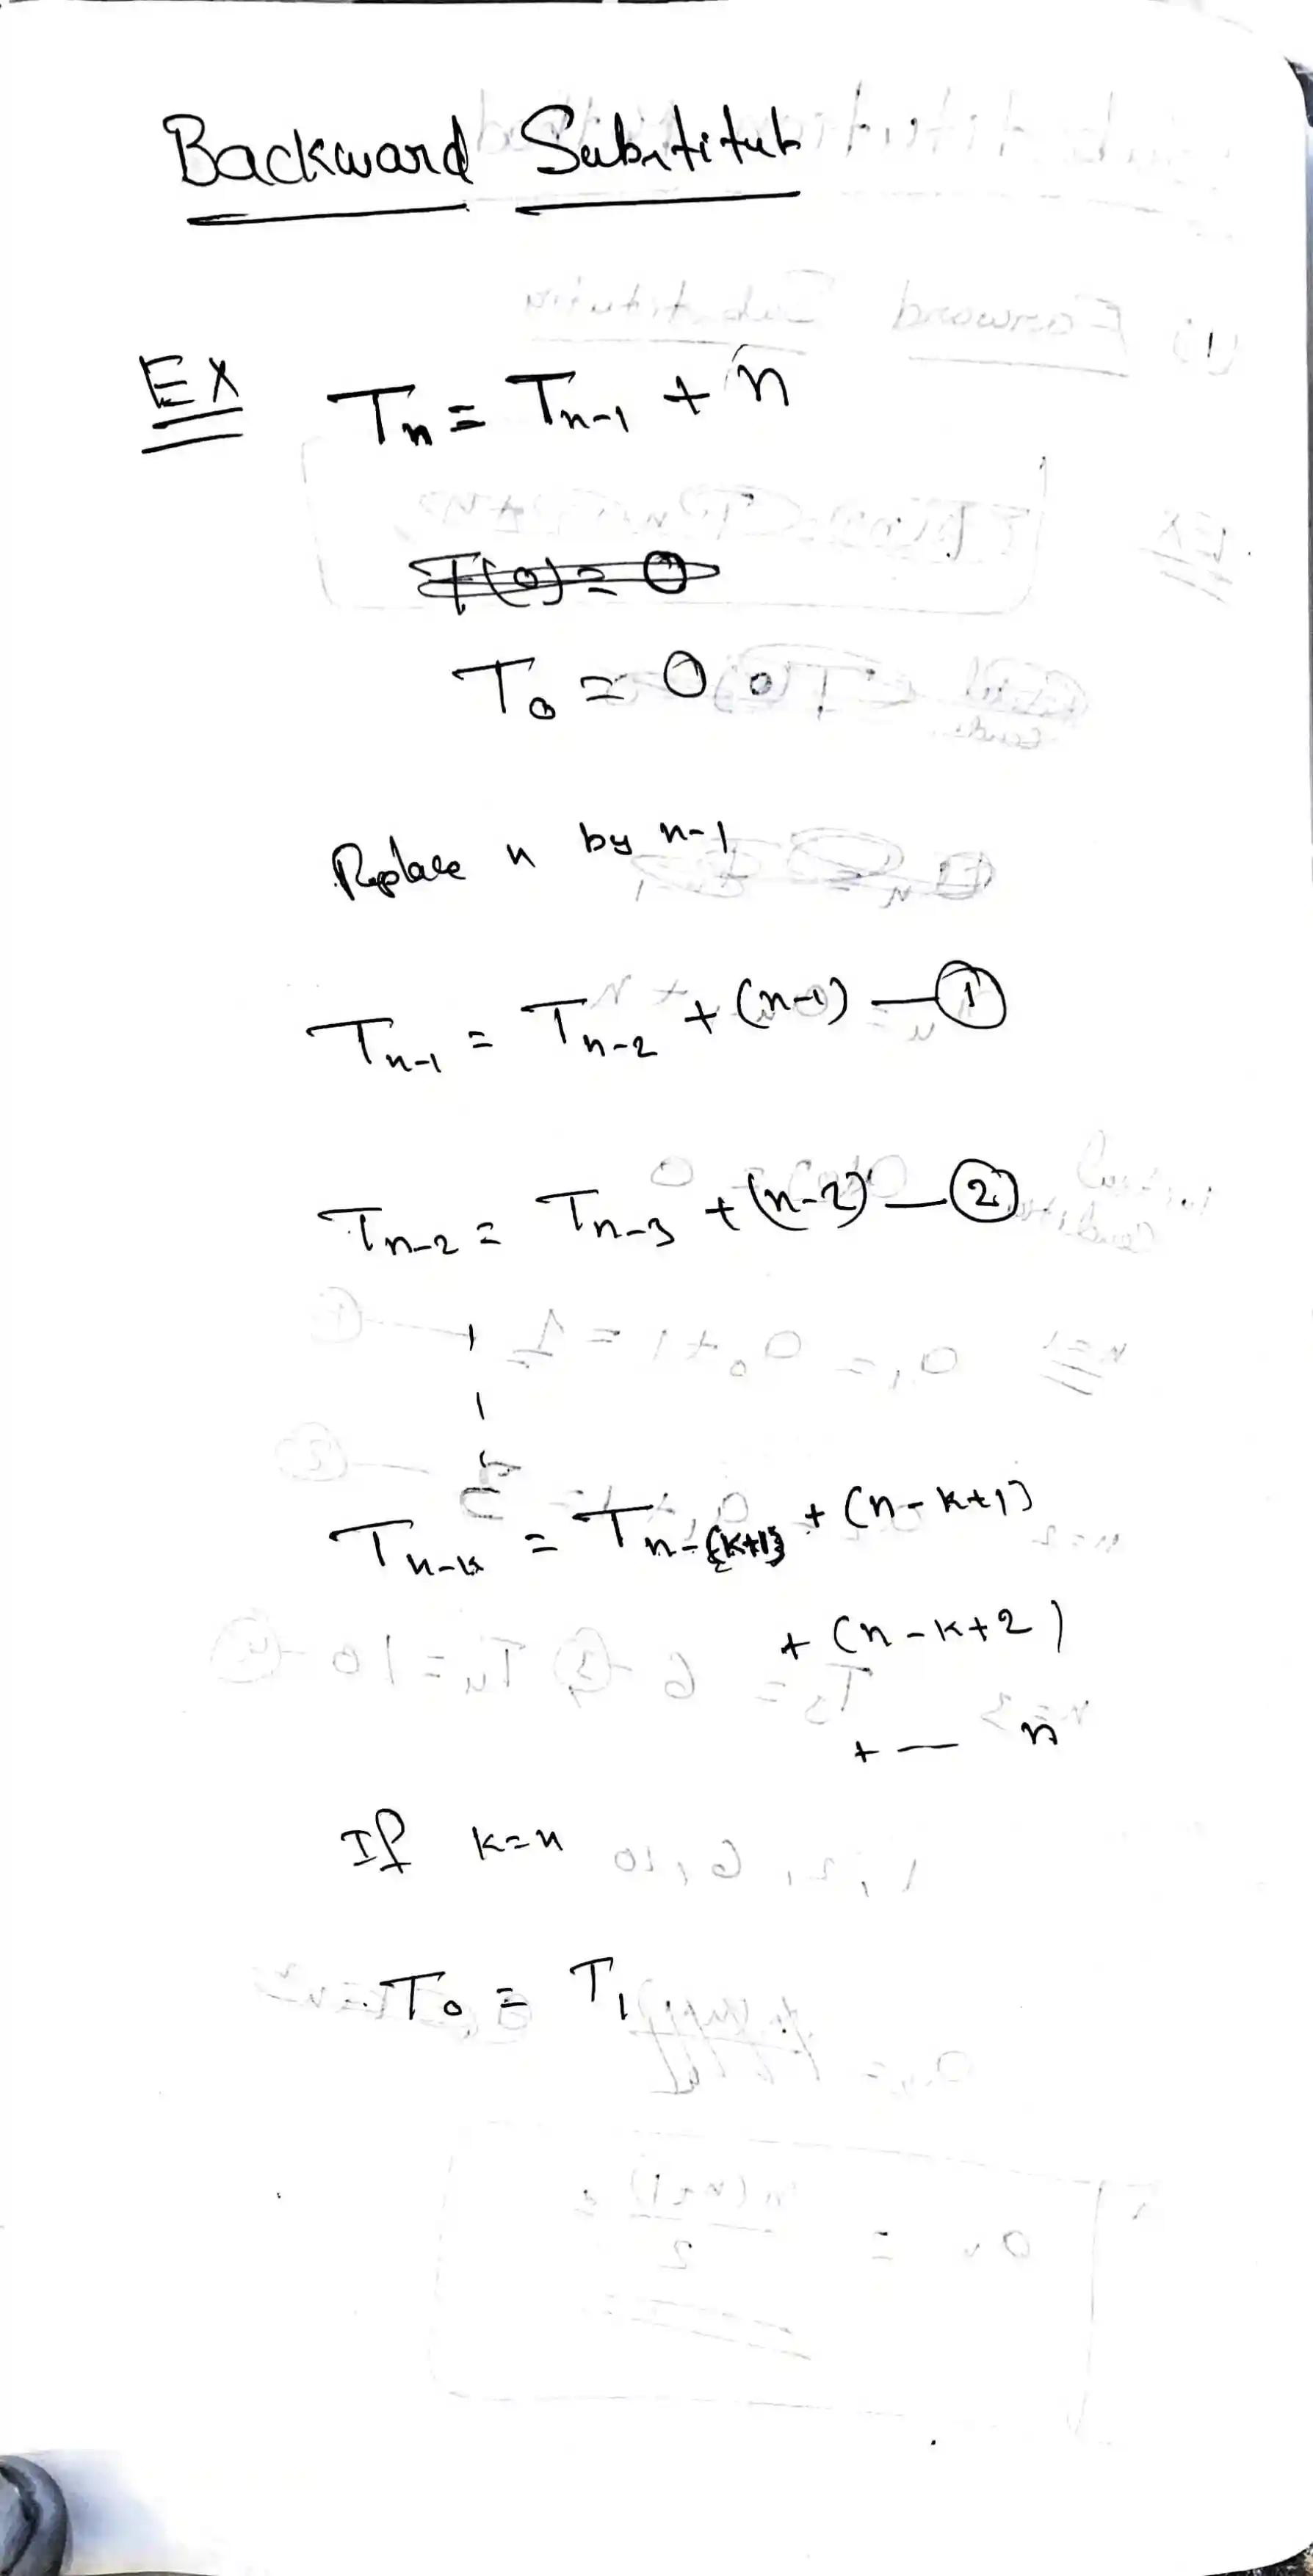 Backward Substitut
EX Tn = Tn-1 + n
T(0) = 0
T0 = 0
Replace n by n-1
Tn-1 = Tn-2 + (n-1) — ①
Tn-2 = Tn-3 + (n-2) — ②
Tn-k = Tn-{k+1} + (n-k+1)
+ (n-k+2)
+ — n
If k=n
T0 = T1